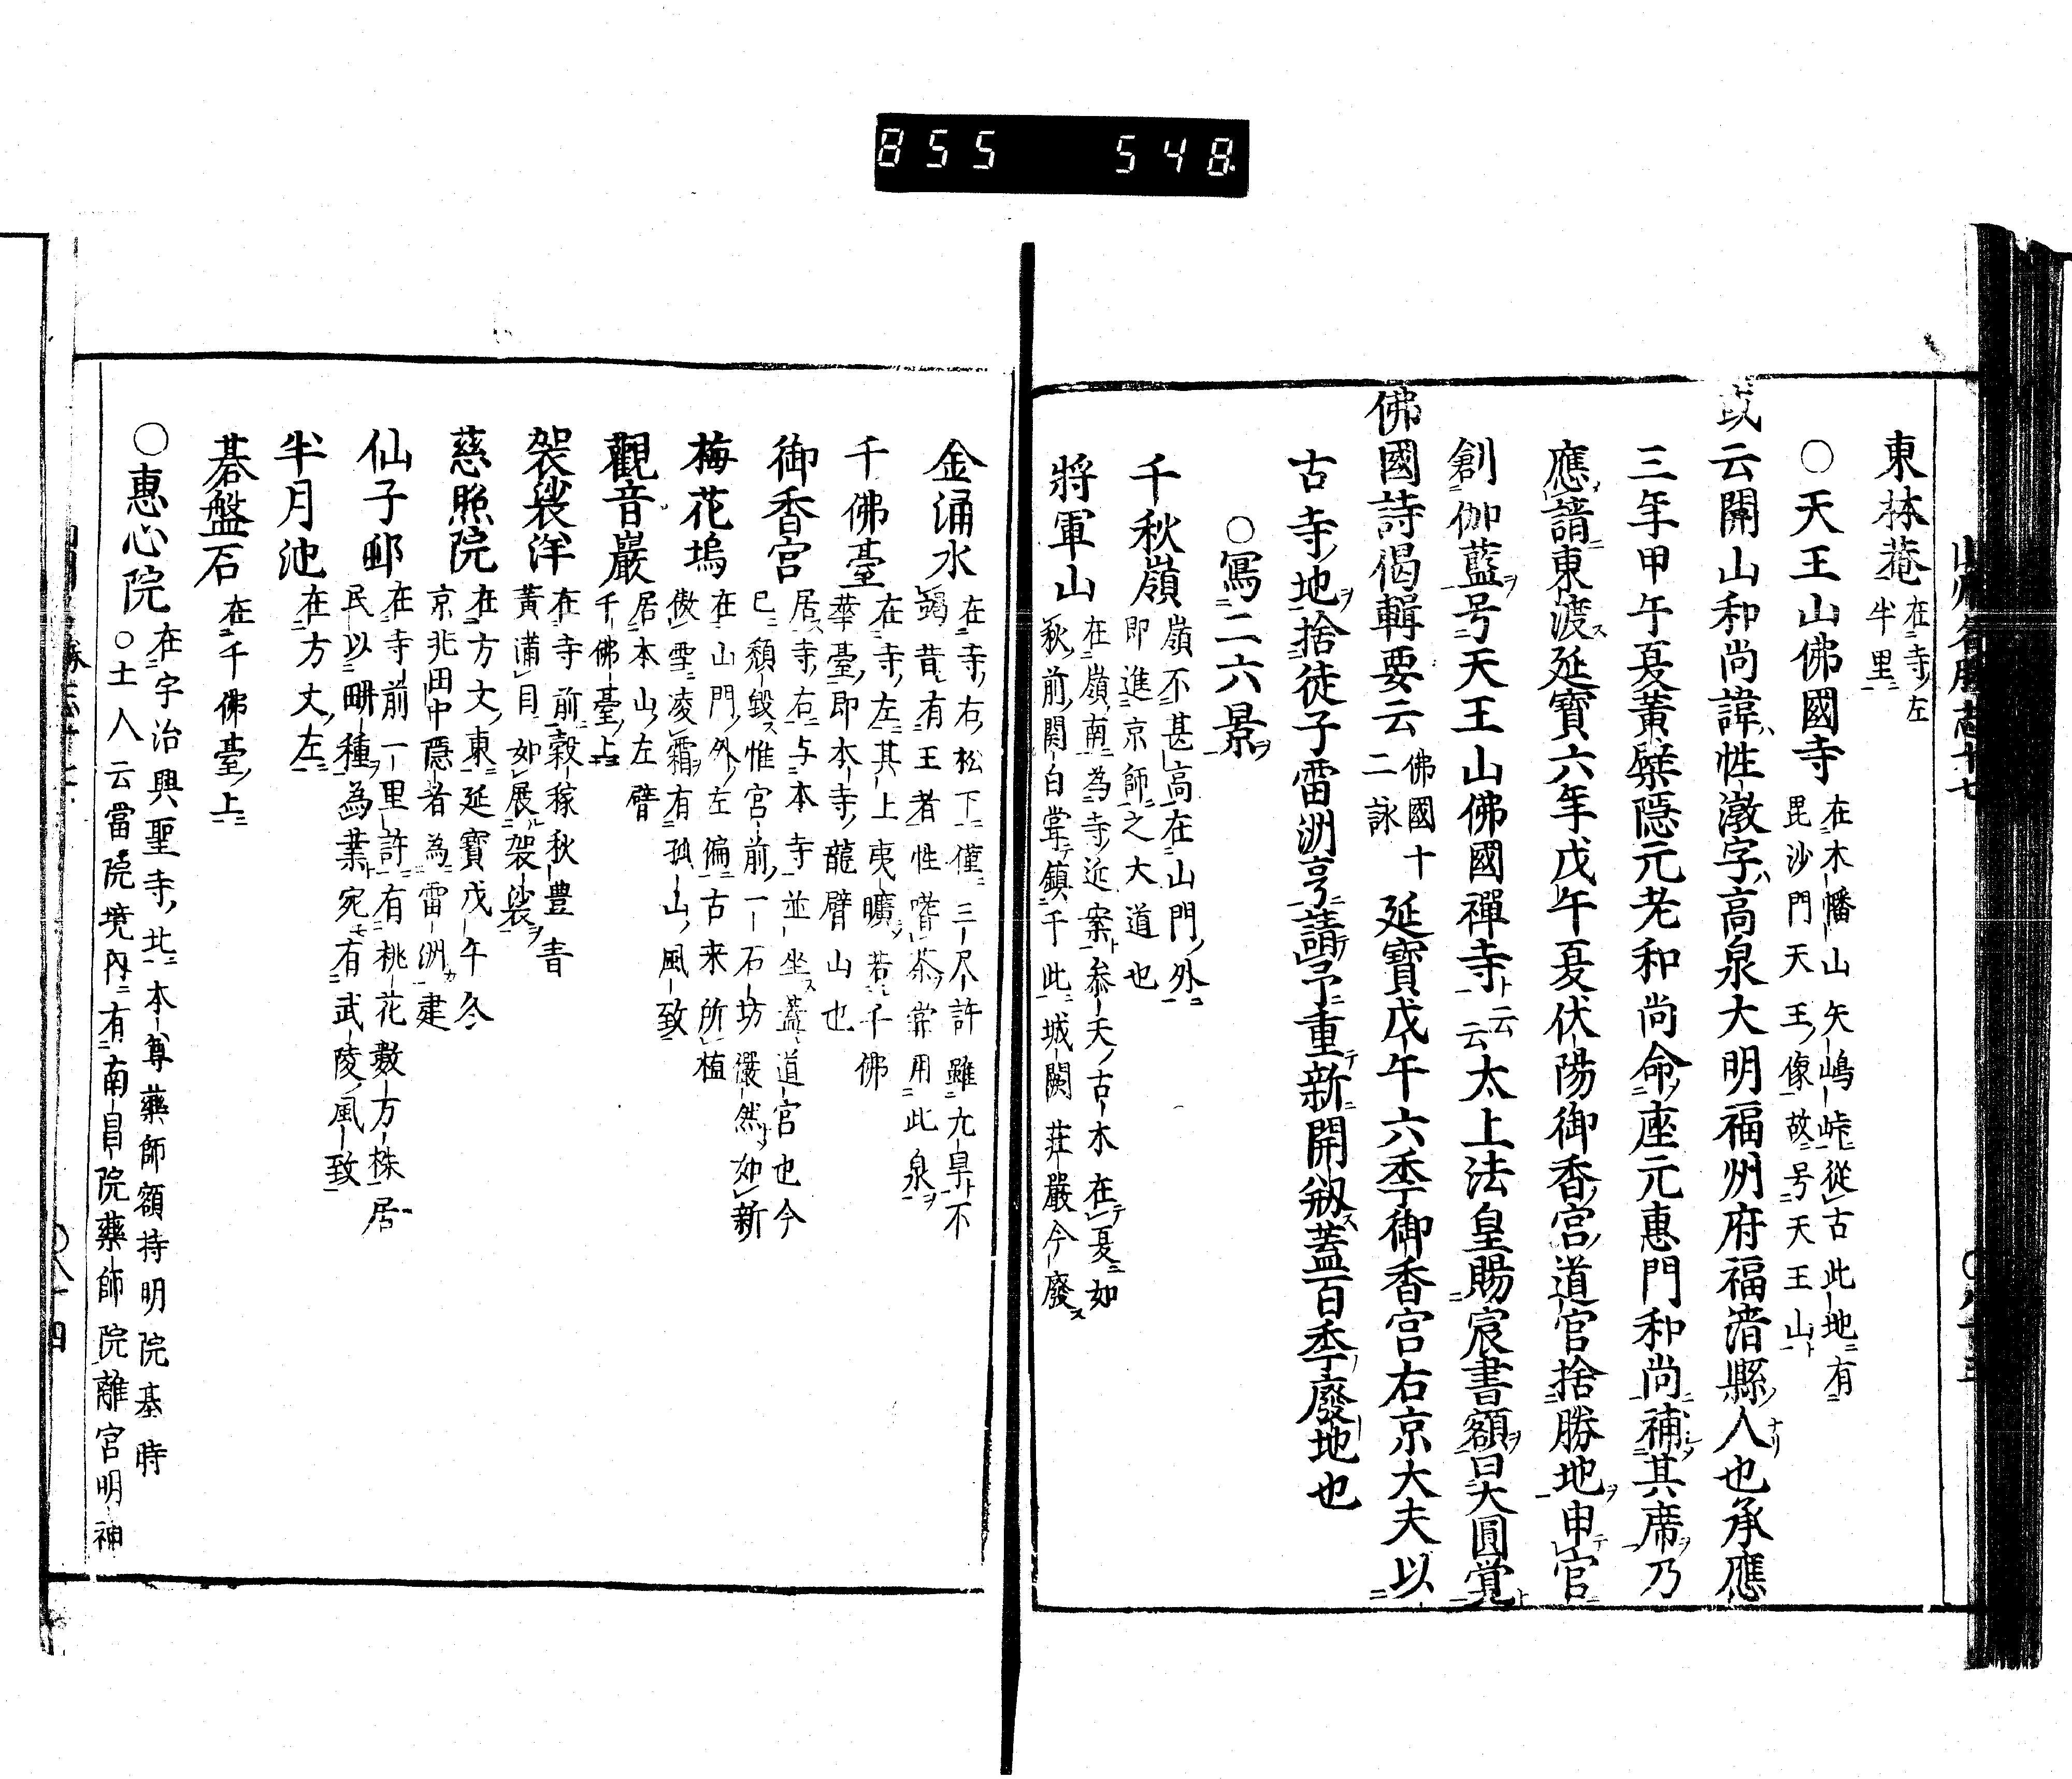 855 548
東林菴 在寺左
半里
○天王山佛國寺 在木幡山矢嶋峠從古此地有
毘沙門天王像故号天王山
或云開山和尚諱性潡字高泉大明福州府福清縣人也承應
三年甲午夏黄檗隠元老和尚命座元惠門和尚補其席乃
應請東渡延寶六年戊午夏伏陽御香宮道官捨勝地申官
創伽藍号天王山佛國禪寺云云太上法皇賜宸書額曰大圓覚
佛國詩偈輯要云 佛國十
二詠 延寶戊午六季御香宮右京大夫以
古寺地捨徒子雷洲亨請予重新開剏蓋百季廢地也
○寫二六景
千秋嶺 嶺不甚高在山門外
即進京師之大道也
將軍山 在嶺南為寺近案參天古木在夏如
秋前関白嘗鎮于此城闕莊嚴今廢
金涌水 在寺右松下僅三尺許雖九旱不
竭昔有王者性嗜茶常用此泉
千佛臺 在寺左其上夷曠若千佛
華臺即本寺龍臂山也
御香宮 居寺右与本寺並坐蓋道官也今
已頽毀惟宮前一石坊儼然如新
梅花塢 在山門外左偏古来所植
傲雪凌霜有孤山風致
觀音巖 居本山左臂
千佛臺上
袈裟洋 在寺前穀稼秋豊青
黄滿目如展袈裟
慈照院 在方丈東延寶戊午冬
京兆田中隱者為雷洲建
仙子邨 在寺前一里許有桃花數万株居
民以畊種為業宛有武陵風致
半月池 在方丈左
碁盤石 在千佛臺上
○惠心院 在宇治興聖寺北本尊藥師額持明院基時
○土人云當院境內有南昌院藥師院離宮明神